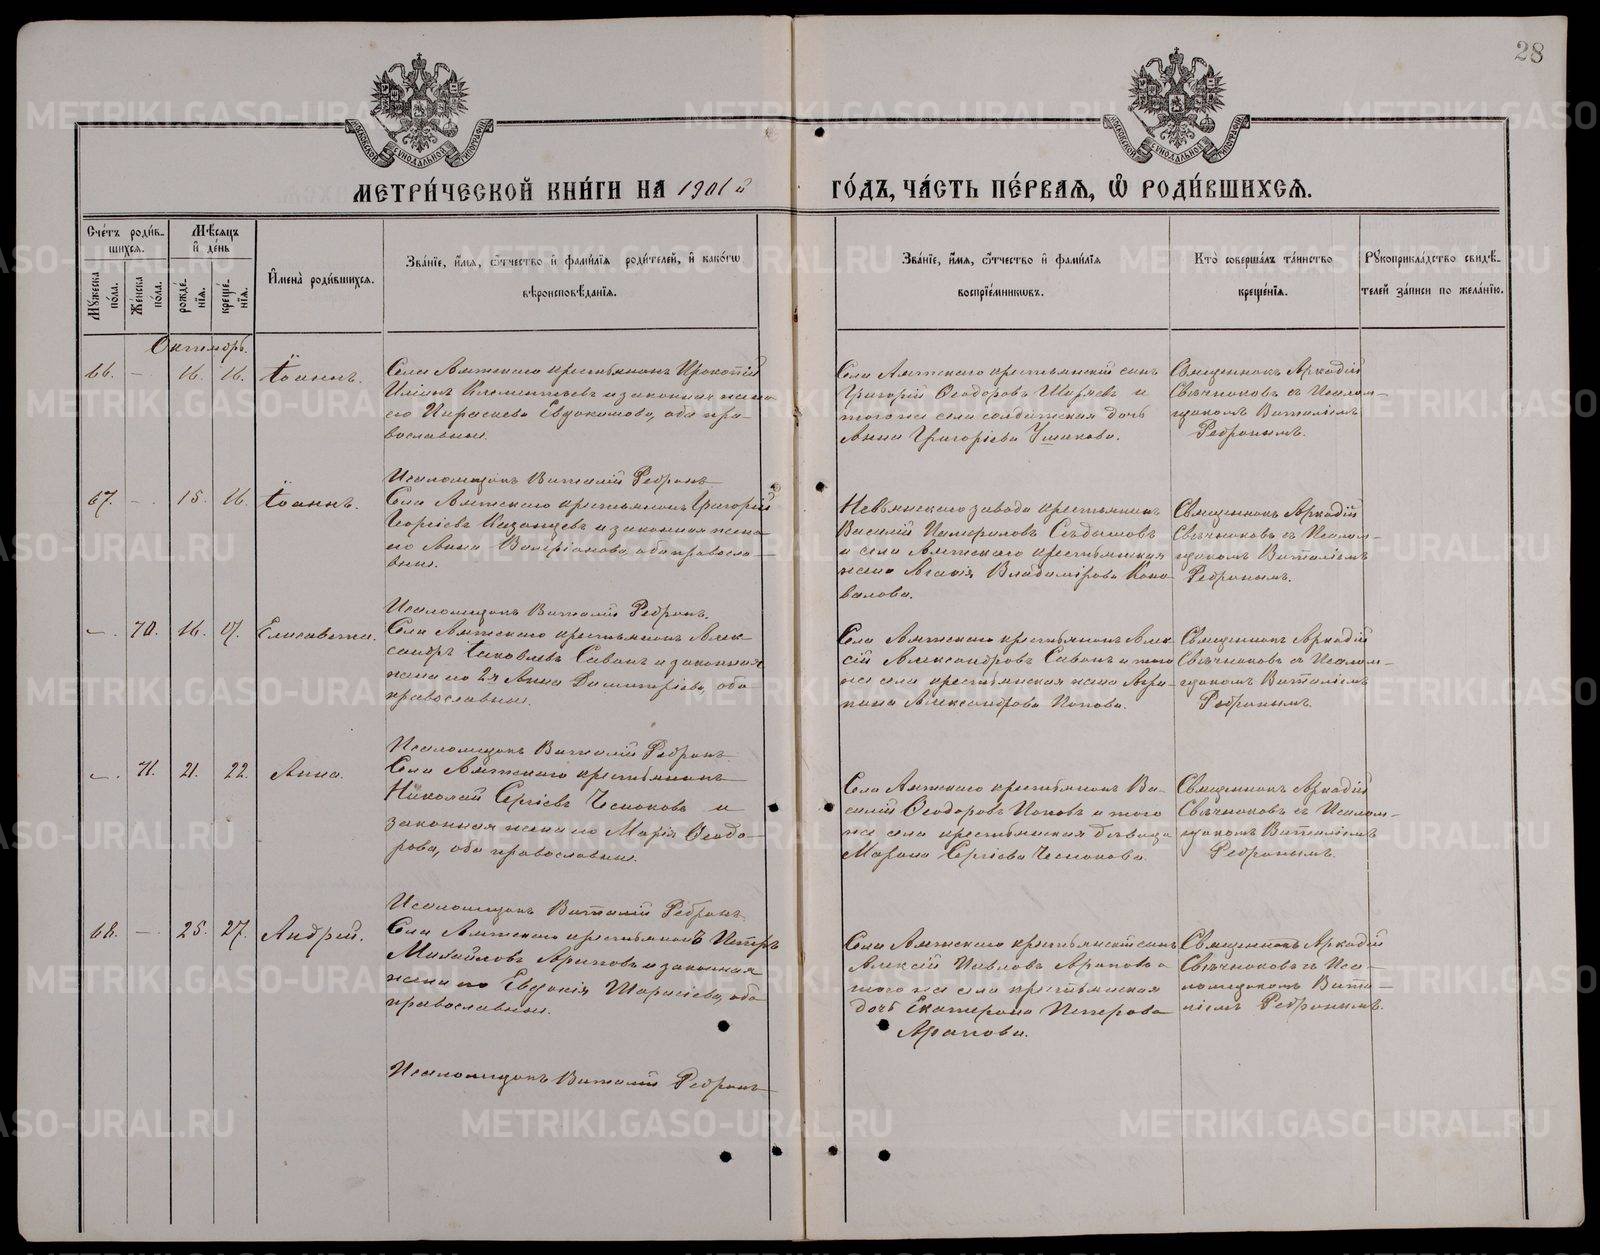 28
МЕТРИ́ЧЕСКОЙ КНИ́ГИ НА 1901 й
ГО́ДЪ, ЧА́СТЬ ПЕ́РВАЯ, Ѿ РОДИ́ВШИХСЯ.
Сче́тъ роди́в-
шихся.
Му́жеска
по́ла.
Же́нска
по́ла.
Мѣ́сяцъ
и҆ де́нь
рожде́-
нїя.
креще́-
нїя.
И҆мена̀ роди́вшихся.
Зва́нїе, и҆́мя, ѻ҆́тчество и҆ фами́лїя роди́телей, и҆ како́гѡ
вѣроисповѣ́данїя.
Зва́нїе, и҆́мя, ѻ҆́тчество и҆ фами́лїя
воспрїе́мниковъ.
Кто̀ соверша́лъ та́инство
креще́нїя.
Рꙋкоприкла́дство свидѣ́-
телей за́писи по жела́нїю.
Октябрь.
66. — 16. 16. Іоаннъ.
Села Аятскаго крестьянинъ Прокопій
Клементьевъ и законная жена
его Параскева Евдокимова, оба пра-
вославные.
Села Аятскаго крестьянскій сынъ
Григорій Ѳеодоровъ Ширяевъ и
того же села солдатская дочь
Анна Григоріева Ушакова.
Священникъ Аркадій
Свѣчниковъ съ Псалом-
щикомъ Виталіемъ
Ребринымъ.
Псаломщикъ Виталій Ребринъ
67. — 15. 16. Іоаннъ.
Села Аятскаго крестьянинъ Григорій
Георгіевъ Казанцевъ и законная жена
его Анна Валеріанова, оба правосла-
вные.
Невьянскаго завода крестьянинъ
Василій
и села Аятскаго крестьянская
жена Агафія Владимірова Коно-
валова.
Священникъ Аркадій
Свѣчниковъ съ Псалом-
щикомъ Виталіемъ
Ребринымъ.
Псаломщикъ Виталій Ребринъ.
—. 70. 16. 17. Елисавета.
Села Аятскаго крестьянинъ Алек-
сандръ Іаковлевъ Савинъ и законная
жена его 2я Анна Димитріева, оба
православные.
Села Аятскаго крестьянинъ Алек-
сій Александровъ Савинъ и того
же села крестьянская жена Агри-
пина Александрова Попова.
Священникъ Аркадій
Свѣчниковъ съ Псалом-
щикомъ Виталіемъ
Ребринымъ.
Псаломщикъ Виталій Ребринъ
—. 71. 21. 22. Анна.
Села Аятскаго крестьянинъ
Николай Сергіевъ Чесноковъ и
законная жена его Марія Ѳеодо-
рова, оба православные.
Села Аятскаго крестьянинъ Ва-
силій Ѳеодоровъ Поповъ и того
же села крестьянская дѣвица
Марина Сергіева Чеснокова.
Священникъ Аркадій
Свѣчниковъ съ Псалом-
щикомъ Виталіемъ
Ребринымъ.
Псаломщикъ Виталій Ребринъ
68. — 25. 27. Андрей.
Села Аятскаго крестьянинъ Петръ
Михайловъ Араповъ и законная
жена его Евдокія Тарасіева, оба
православные.
Села Аятскаго крестьянскій сынъ
Алексій Павловъ Араповъ и
того же села крестьянская
дочь Екатерина Петрова
Арапова.
Священникъ Аркадій
Свѣчниковъ съ Пса-
ломщикомъ Вита-
ліемъ Ребринымъ.
Псаломщикъ Виталій Ребринъ
METRIKI.GASO-URAL.RU